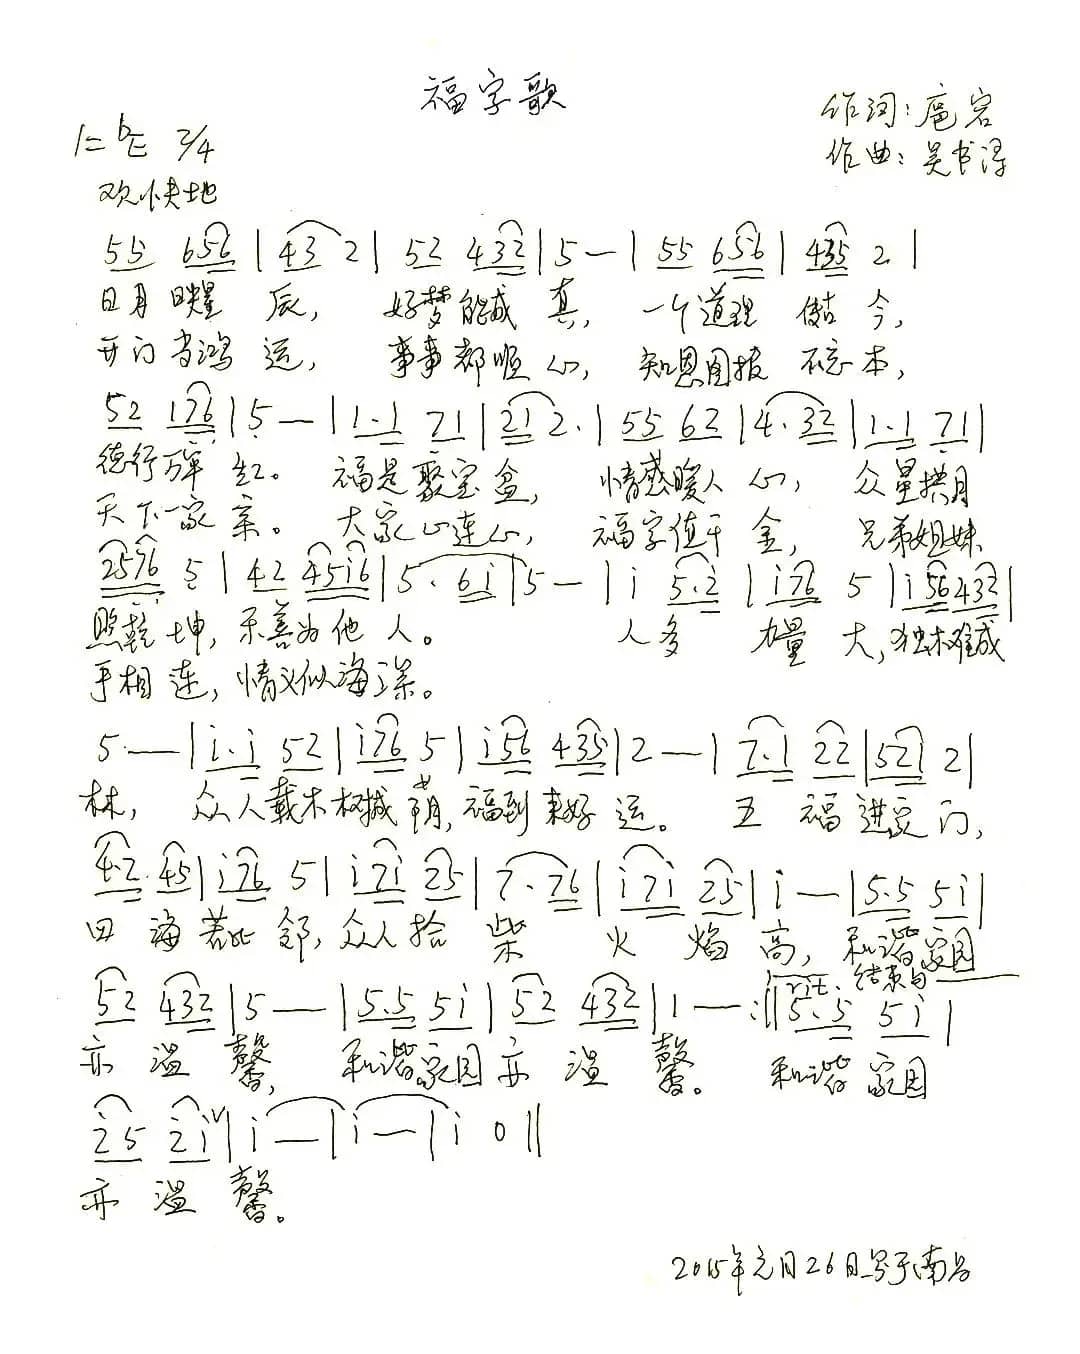 福字歌
作词:扈容
1=♭E 2/4
作曲:吴书淳
欢快地
55 656 | 43 2 | 52 432 | 5 — | 55 656 | 435 2 |
日月映星辰, 好梦能成真, 一个道理传古今,
开门当鸿运, 事事都顺心, 知恩图报不忘本,
52 176 | 5 — | 1.1 71 | 21 2. | 55 62 | 4.32 | 1.1 71 |
德行万年红。 福是聚宝盆, 情感暖人心, 众星拱月
天下一家亲。 大家心连心, 福字值千金, 兄弟姐妹
2576 5 | 42 45i6 | 5. 6i | 5 — | i 5.i | i76 5 | i56432 |
照乾坤, 乐善为他人。 人多力量大, 独木难成
手相连, 情义似海深。
5 — | i.i 52 | i76 5 | i56 435 | 2 — | 7.1 22 | 521 2 |
林, 众人栽木树成荫, 福到来好运。 五福进家门,
4.2. 45 | i76 5 | i7i 25 | 7.76 | i7i 25 | i — | 5.5 5i |
四海若比邻, 众人拾柴火焰高, 和谐家园
rit. 结束句
52 432 | 5 — | 5.5 5i | 52 432 | 1 — :‖ 5.5 5i |
亦温馨, 和谐家园亦温馨。 和谐家园
i5 2i | i — | i — | i 0 ‖
亦温馨。
2015年元月26日写于南昌